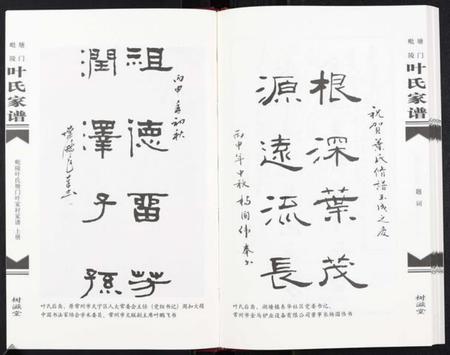 塘门
毗陵
叶氏家谱
毗陵叶氏塘门叶家村家谱 上册
树滋堂
祖德畱芳
丙申年初秋
潤澤子孫
叶氏后裔、原常州市天宁区人大常委会主任（党组书记）周和大领
中国书法家协会学术委员、常州市文联副主席叶鹏飞书
祝賀葉氏修譜玉成之慶
根深葉茂
源遠流長
丙申年中秋 楊国伟 奉书
叶氏后裔、湖塘镇东华社区党委书记、
常州市金马炉业设备有限公司董事长杨国伟书
塘门
毗陵
叶氏家谱
题词
树滋堂